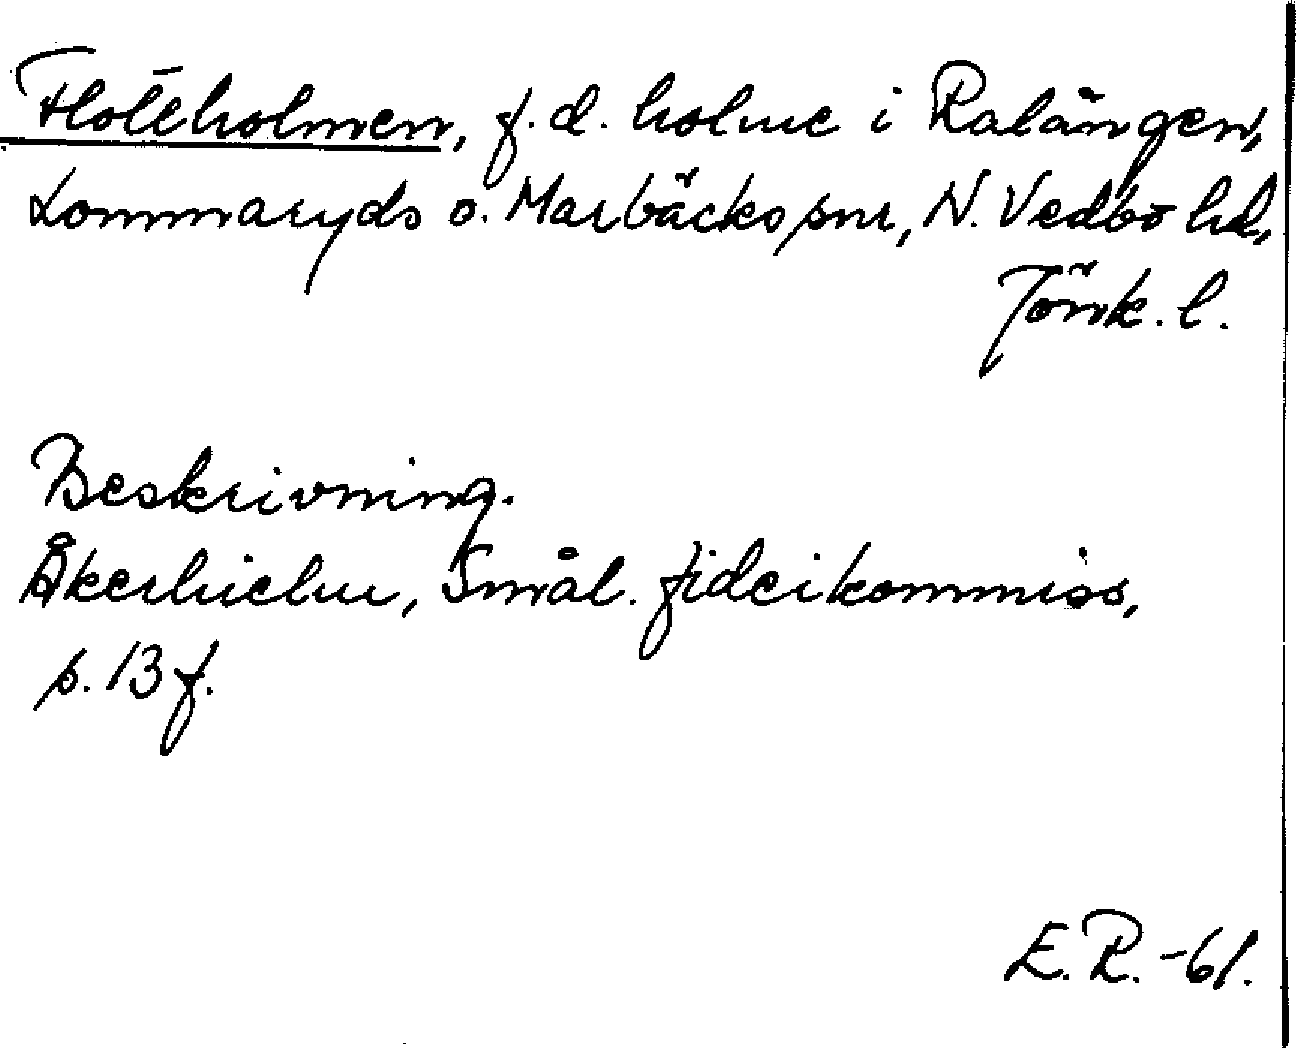 Floteholmen, f.d. holme i Ralången,
Lommaryds o. Marbäcks snr, N. Vedbo hd,
Jönk. l.
Beskrivning.
Åkerhielm, Smål. fideikommiss,
s. 13 f.
E.R. -61.